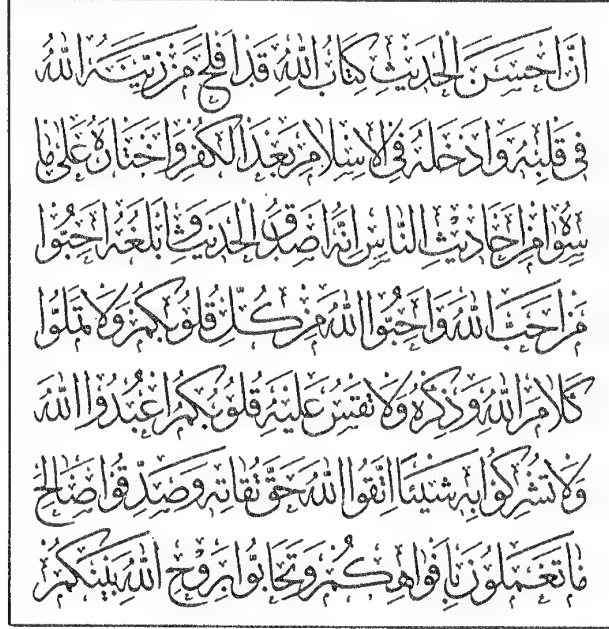 انَّ احْسَنَ الْحَدِيثِ كِتَابُ اللهِ قَدْ اَفْلَحَ مَنْ زَيَّنَهُ اللهُ
فِي قَلْبِهِ وَادْخَلَهُ فِي الْاِسْلَامِ بَعْدَ الْكُفْرِ وَاخْتَارَهُ عَلَى مَا
سِوَاهُ مِنْ اَحَادِيْثِ النَّاسِ اِنَّهُ اَصْدَقُ الْحَدِيثِ وَاَبْلَغُهُ اَحِبُّوا
مَنْ اَحَبَّ اللهَ وَاَحِبُّوا اللهَ مِنْ كُلِّ قُلُوبِكُمْ وَلَا تَمَلُّوا
كَلَامَ اللهِ وَذِكْرَهُ وَلَا تَقْسُ عَلَيْهِ قُلُوبُكُمْ اعْبُدُوا اللهَ
وَلَا تُشْرِكُوا بِهِ شَيْئًا اتَّقُوا اللهَ حَقَّ تُقَاتِهِ وَصَدِّقُوا صَالِحَ
مَا تَعْمَلُوْنَ بِاَفْوَاهِكُمْ وَتَحَابُّوا بِرَوْحِ اللهِ بَيْنَكُمْ